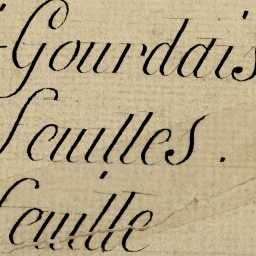 -Gourdais
feuilles.
feuille